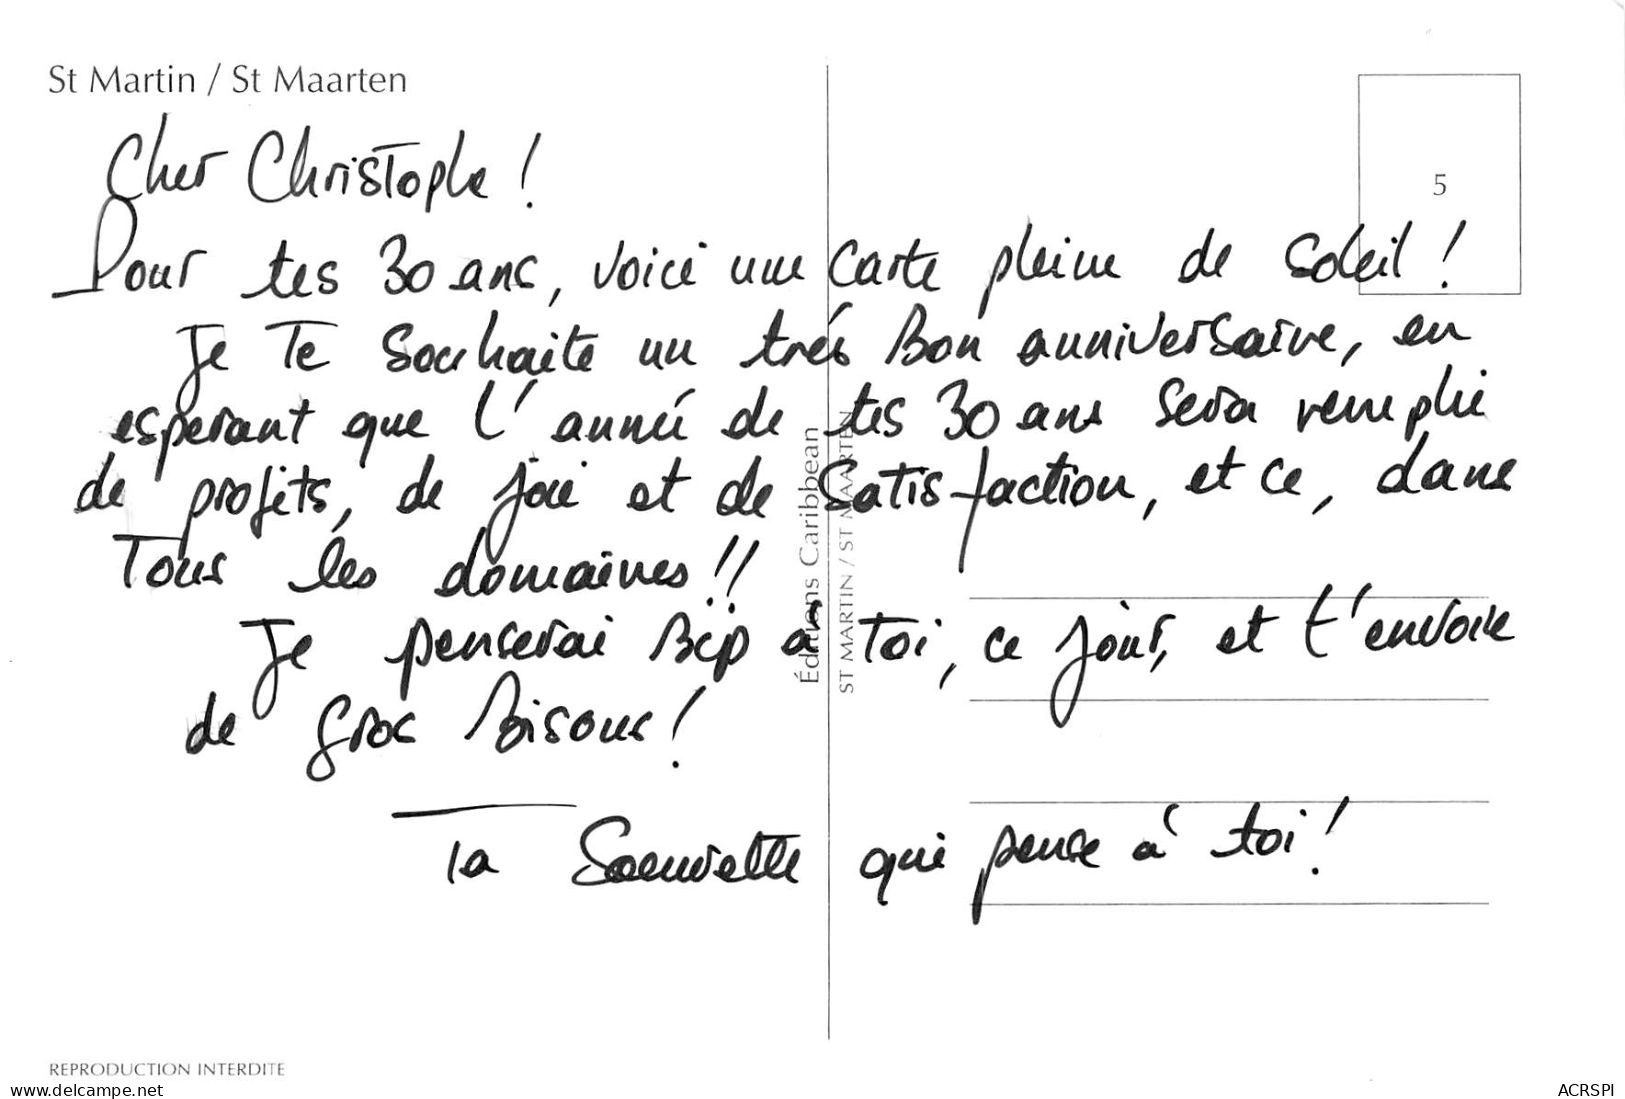 St Martin / St Maarten
5
Cher Christophe !
Pour tes 30 ans, voici une carte pleine de soleil !
Je te souhaite un trés Bon anniversaire, en
esperant que l'année de tes 30 ans sera remplie
de profits, de joie et de satisfaction, et ce, dans
Tous les domaines !!
Je penserai Bcp à toi, ce jour, et t'envoie
de gros Bisous !
Ta Soeurette qui pense à toi !
Éditions Caribbean
ST MARTIN / ST MAARTEN
REPRODUCTION INTERDITE
www.delcampe.net
ACRSPI